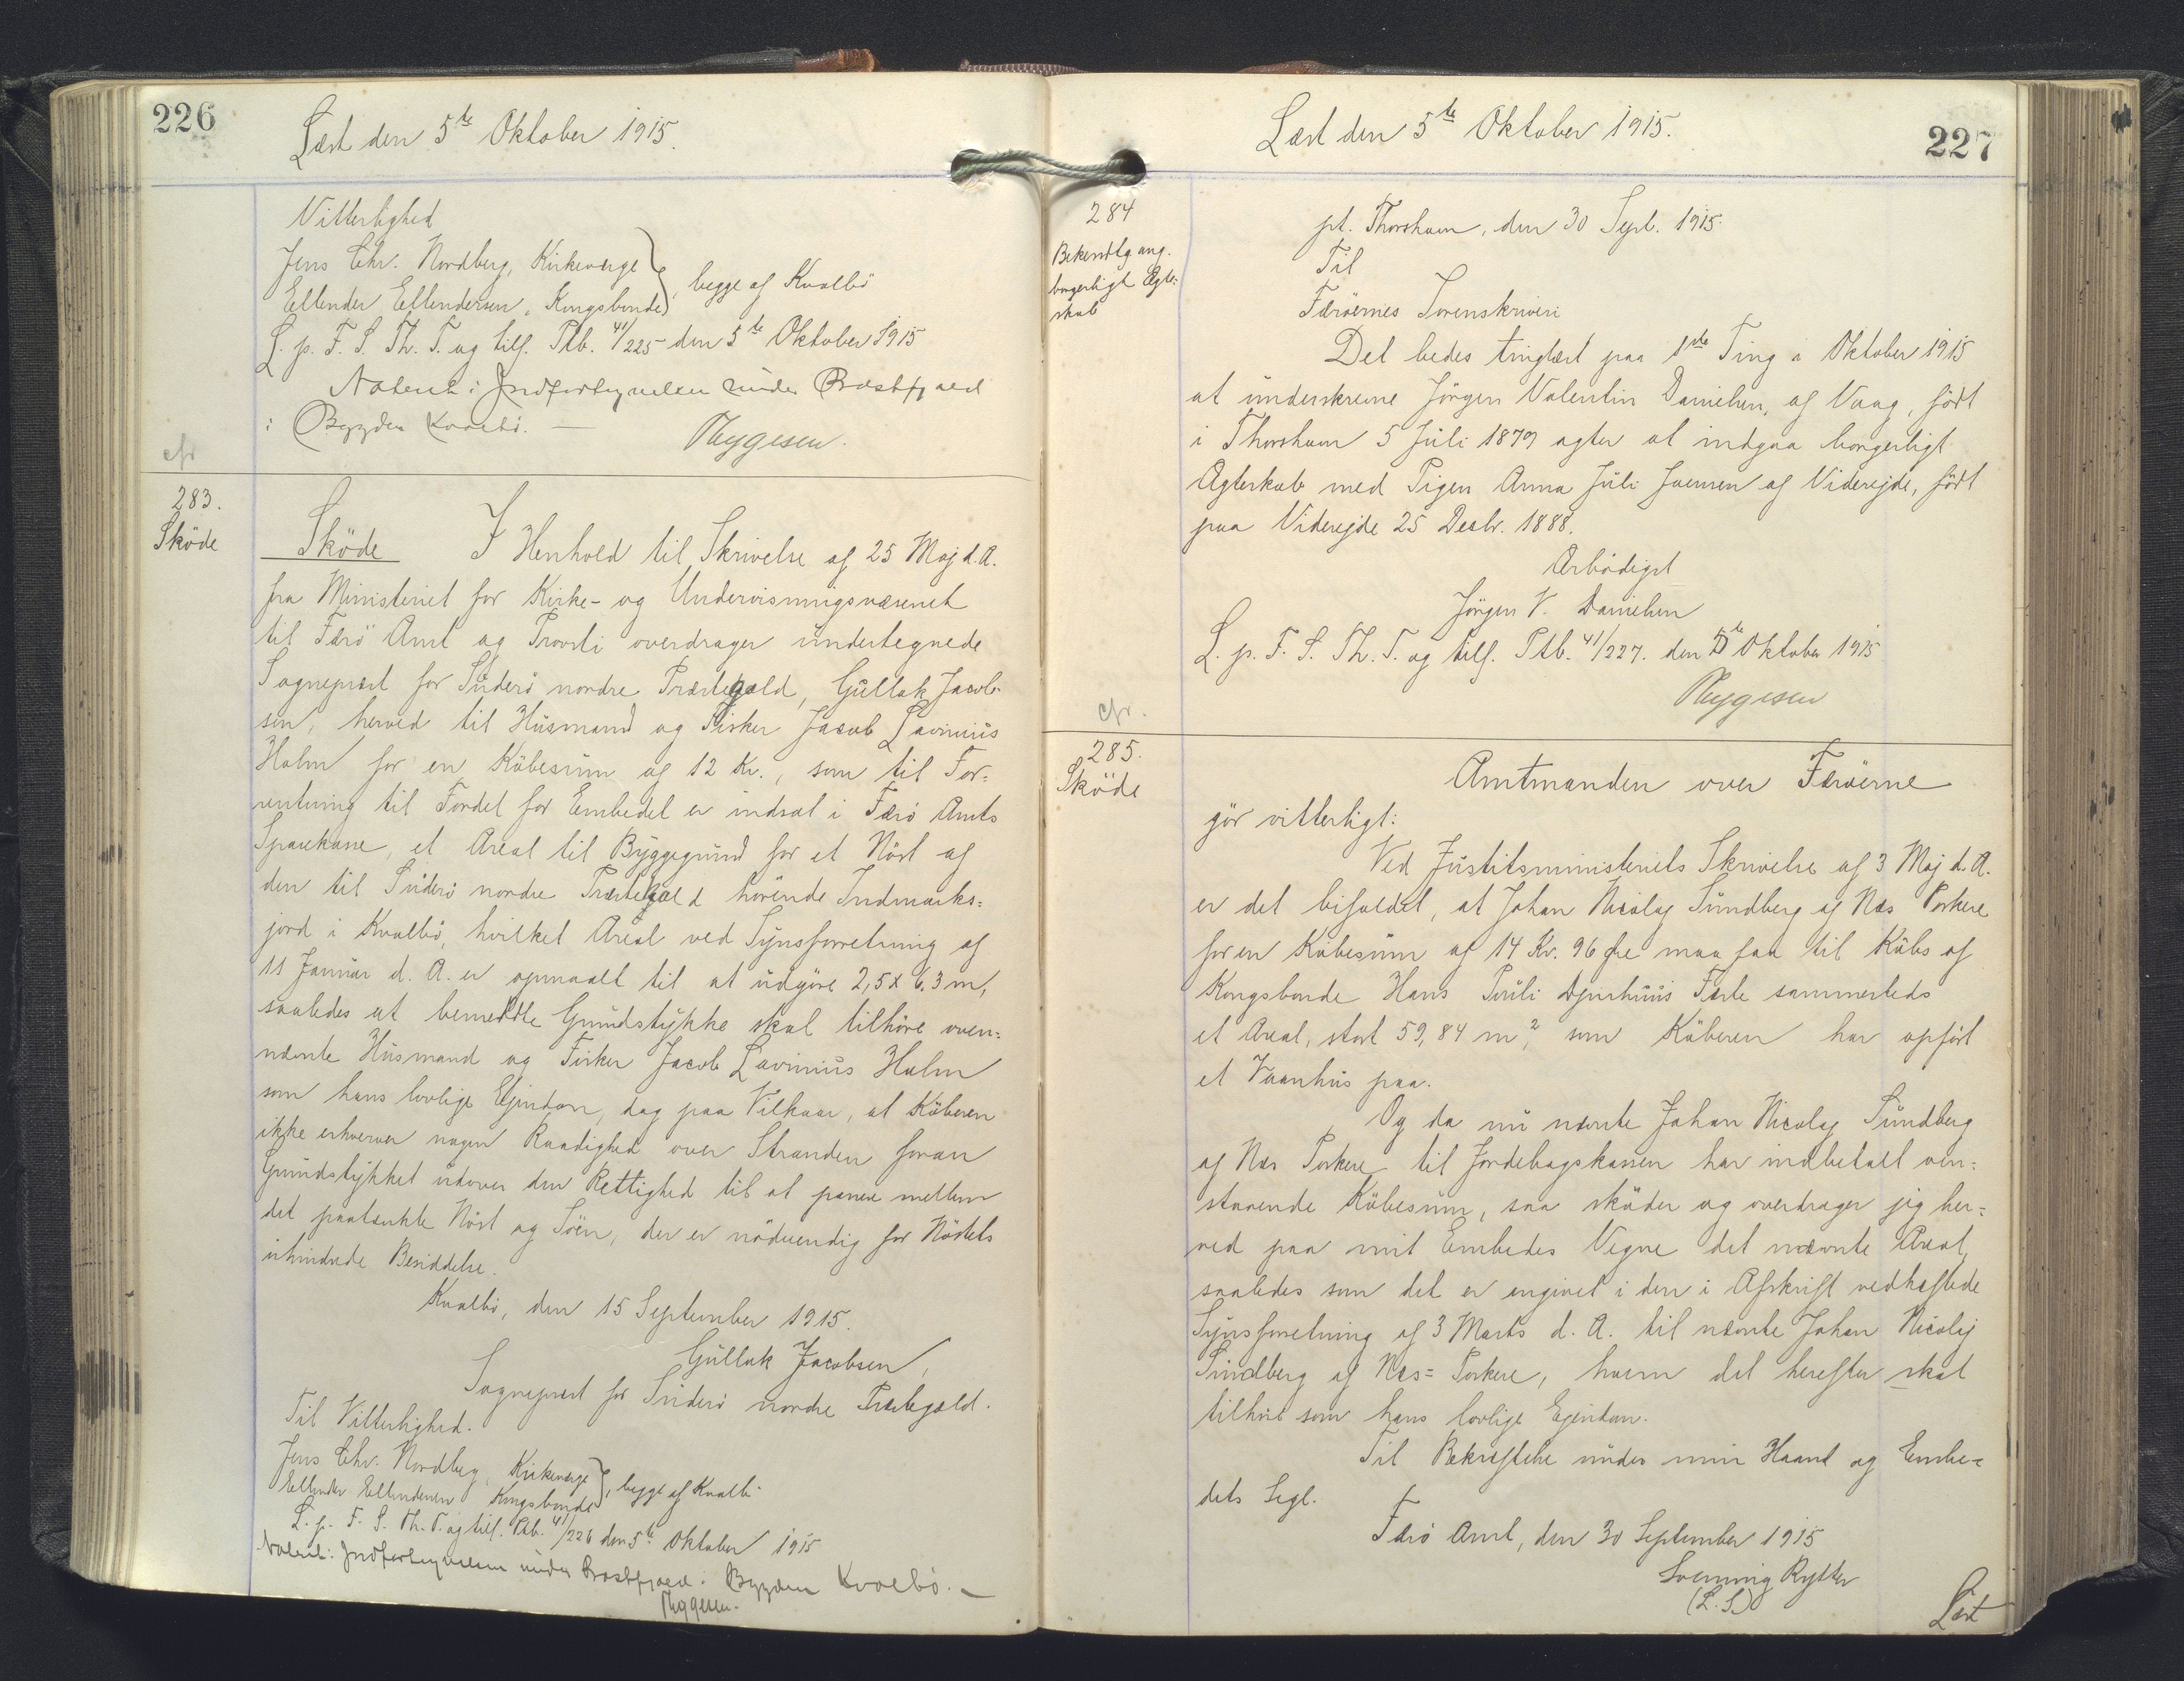 226
Læst den 5te Oktober 1915.
Vitterlighed
Jens Chr. Nordberg, Kirkeværge
Ellender Ellendersen, Kongsbonde
begge af Kvalbö
L. p. F. S. Th. T. og tilf. Ptb. 41/225 den 5te Oktober 1915
Noteret i
i Bygden Kvalbö. —
Thygesen.
cfr
283.
Sköde
Sköde I Henhold til Skrivelse af 25 Maj d. A.
fra Ministeriet for Kirke- og Undervisningsvæsenet
til Færö Amt og Provsti overdrager undertegnede
Sognepræst for Suderö nordre Præstegæld, Gullak Jacob-
sen, herved til Husmand og Fisker Jacob Lavinius
Holm for en Köbesum af 12 Kr., som til For-
rentning til Fordel for Embedet er indsat i Færö Amts
Sparekasse, et Areal til Byggegrund for et Nöst af
den til Suderö nordre Præstegæld hörende Indmarks-
jord i Kvalbö, hvilket Areal ved Synsforretning af
11 Januar d. A. er opmaalt til at udgöre 2,5 x 6.3 m,
saaledes at bemeldte Grundstykke skal tilhöre oven-
nævnte Husmand og Fisker Jacob Lavinius Holm
som hans lovlige Ejendom, dog paa Vilkaar, at Köberen
ikke erhverver nogen Raadighed over Stranden foran
Grundstykket udover den Rettighed til at passere mellem
det paatænkte Nöst og Söen, der er nödvendig for Nöstets
uhindrede Besiddelse.
Kvalbö, den 15 September 1915.
Gullak Jacobsen,
Sognepræst for Suderö nordre Præstegæld.
Til Vitterlighed.
Jens Chr. Nordberg, Kirkeværge
Ellender Ellendersen Kongsbonde
begge af Kvalbö
L. p. F. S. Th. T. og tilf. Ptb. 41/226 den 5te Oktober 1915
Noteret i
Bygden Kvalbö. —
Thygesen.
227
Læst den 5te Oktober 1915.
284
Bekendtg ang.
borgerligt Ægte-
skab
pt. Thorshavn, den 30 Sept. 1915.
Til
Færöernes Sorenskriveri
Det bedes tinglæst paa 1ste Ting i Oktober 1915
at underskrevne Jörgen Valentin Danielsen, af Vaag, födt
i Thorshavn 5 Juli 1879 agter at indgaa borgerligt
Ægteskab med Pigen Anna Juli Joensen af Viderejde, födt
paa Viderejde 25 Decbr. 1888.
Ærbödigst
Jörgen V. Danielsen
L. p. F. S. Th. T. og tilf. Ptb. 41/227. den 5te Oktober 1915
Thygesen
cfr.
285.
Sköde
Amtmanden over Færöerne
gör vitterligt:
Ved Justitsministeriets Skrivelse af 3 Maj d. A.
er det bifaldet, at Johan Nicolaj Sundberg af Næs Porkere
for en Köbesum af 14 Kr. 96 Øre maa faa til Köbs af
Kongsbonde Hans Pauli Djurhuus Fæste sammesteds
et Areal, stort 59,84 m², som Köberen har opfört
et Vaanhus paa.
Og da nu nævnte Johan Nicolaj Sundberg
af Næs Porkere til Jordebogskassen har indbetalt oven-
staaende Köbesum, saa sköder og overdrager jeg her-
ved paa mit Embedes Vegne det nævnte Areal,
saaledes som det er angivet i den i Afskrift vedhæftede
Synsforretning af 3 Marts d. A. til nævnte Johan Nicolaj
Sundberg af Næs-Porkere, hvem det herefter skal
tilhöre som hans lovlige Ejendom.
Til Bekræftelse under min Haand og Embe-
dets Segl.
Færö Amt, den 30 September 1915
Svenning Rytter
(L. S.)
Læst